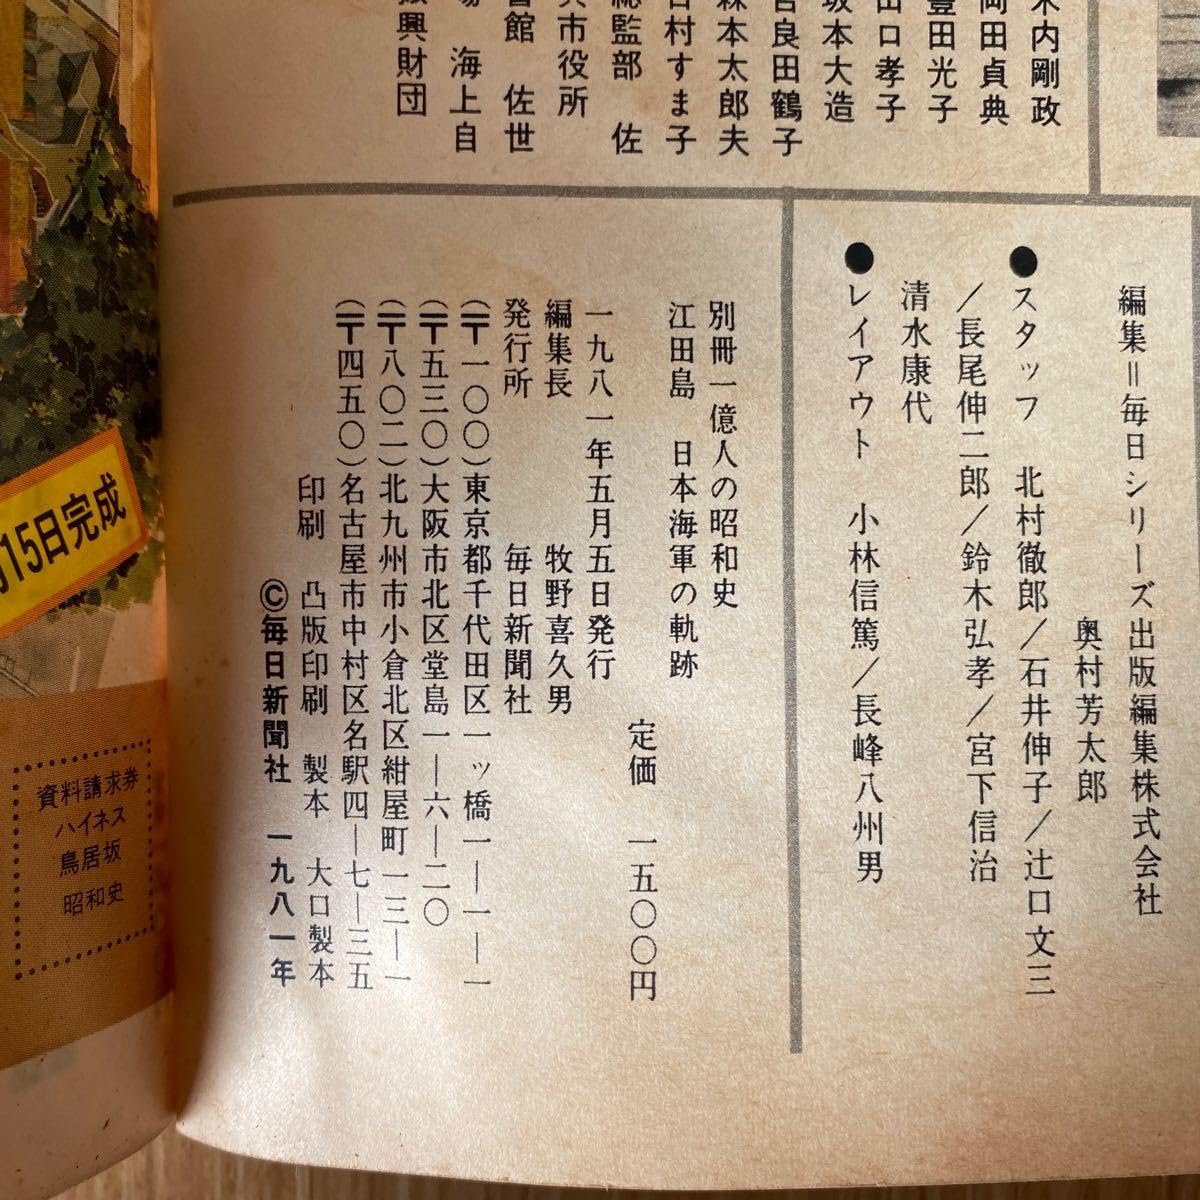 木内剛政
岡田貞典
豊田光子
山口孝子
坂本大造
宮良田鶴子
森本太郎夫
村すま子
総監部　佐
市役所
館　佐世
海上自
振興財団
編集＝毎日シリーズ出版編集株式会社
奥村芳太郎
●スタッフ　北村徹郎／石井伸子／辻口文三
／長尾伸二郎／鈴木弘孝／宮下信治
清水康代
●レイアウト　小林信篤／長峰八州男
別冊一億人の昭和史
江田島　日本海軍の軌跡
定価　一五〇〇円
一九八一年五月五日発行
編集長　牧野喜久男
発行所　毎日新聞社
（〒一〇〇）東京都千代田区一ッ橋一―一―一
（〒五三〇）大阪市北区堂島一―六―二〇
（〒八〇二）北九州市小倉北区紺屋町一三―一
（〒四五〇）名古屋市中村区名駅四―七―三五
印刷　凸版印刷　製本　大口製本
©毎日新聞社　一九八一年
15日完成
資料請求券
ハイネス
鳥居坂
昭和史